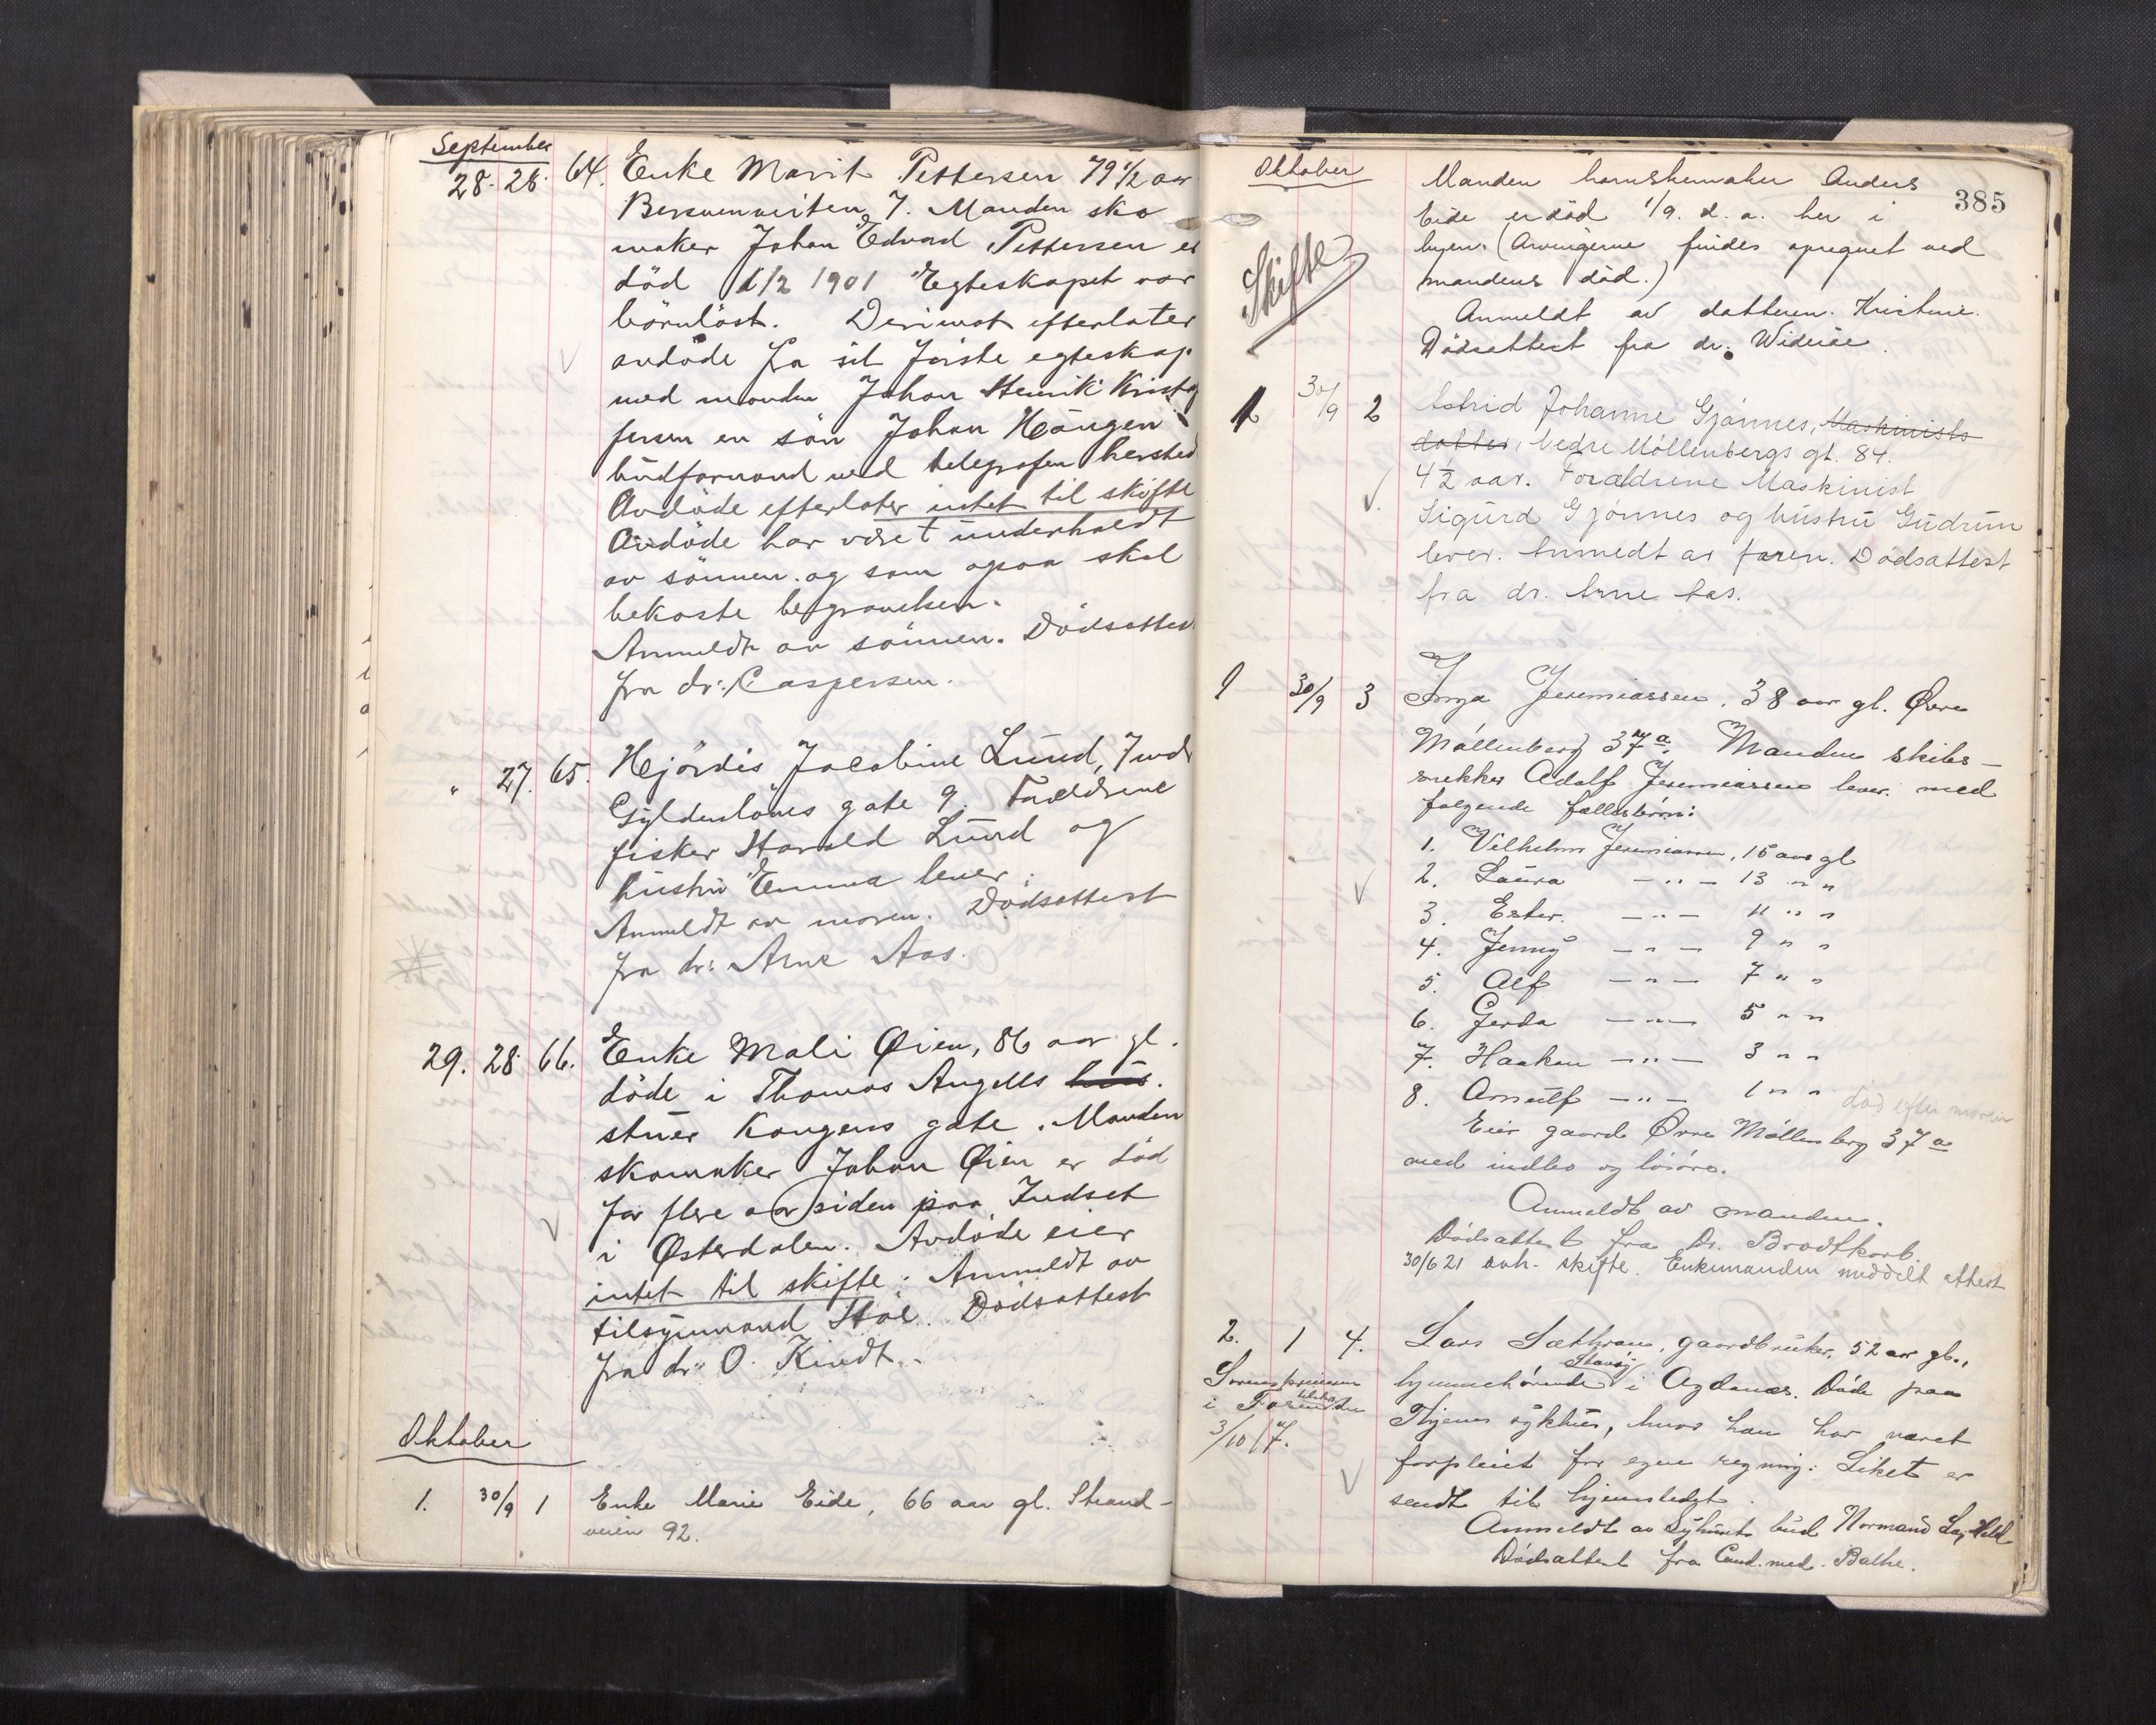 September
28. 26. 64. Enke Marit Pettersen 79 1/2 aar
Bersvenveiten 7. Manden sko
maker Johan Edvard Pettersen er
död 1/2 1901 Egteskapet var
börnlöst. Derimot efterlater
avdöde fra sit förste egteskap
med manden Johan Henrik Kristof
fersen en sön Johan Haugen
budformand ved telegrafen hersted
Avdöde efterlater intet til skifte
Avdöde har været underholdt
av sönnen og som ogsaa skal
bekoste begravelsen.
Anmeldt av sönnen. Dödsattest
fra dr. Caspersen.
" 27. 65. Hjördis Jacobine Lund, 7 mdr
Gyldenlöves gate 9. Foreldrene
fisker Harald Lund og
hustru Emma lever.
Anmeldt av moren. Dödsattest
fra dr. Arne Aas.
29. 28 66. Enke Mali Øien, 86 aar gl.
döde i Thomas Angells hus.
stuer Kongens gate. Manden
skomaker Johan Øien er död
for flere aar siden paa Indset
i Østerdalen. Avdöde eier
intet til skifte. Anmeldt av
tilsynsmand Hoel. Dödsattest
fra dr. O. Kindt.
Oktober
1. 30/9 1 Enke Marie Eide, 66 aar gl. Strand-
veien 92.
385
Oktober
Manden harnskemaker Anders
Eide er död 1/9. d. a. her i
byen. (Arvingerne findes opregnet ved
mandens död.)
Skifte
Anmeldt av datteren. Kristine.
Dödsattest fra dr. Wideröe.
1 30/9 2 Astrid Johanne Gjönnes, Maskinists
datter, Nedre Möllenbergs gt. 84.
4 1/2 aar. Forældrene Maskinist
Sigurd Gjönnes og hustru Gudrun
lever. Anmeldt av faren. Dödsattest
fra dr. Arne Aas.
1 30/9 3 Inga Jeremiassen, 38 aar gl. Øvre
Möllenberg 37a. Manden skibs-
snekker Adolf Jeremiassen lever. med
følgende fællesbörn:
1. Vilhelm Jeremiassen, 15 aar gl
2. Laura — " — 13 " "
3. Ester. — " — 11 " "
4. Jenny — " — 9 " "
5. Alf — " — 7 " "
6. Gerda — " — 5 " "
7. Haakon — " — 3 " "
8. Arnulf — " — 1 " " död efter moren
Eier gaard Øvre Möllenberg 37a
med indbo og lösöre.
Anmeldt av manden.
Dödsattest fra Dr. Brodtkorb.
30/6 21 avh. skifte. Enkemanden meddelt attest
2. 1 4. Lars Sæthran, gaardbruker, 52 aar gl.,
hjemmehörende i Agdenes. Döde paa
Sorenskriveren
i Fosen
3/10 17.
Hjems sykhus, hvor han har været
forpleiet for egen regning. Liket er
sendt til hjemstedet.
Anmeldt av Sykhusets bud Normand
Dödsattest fra Cand. med. Bathe.